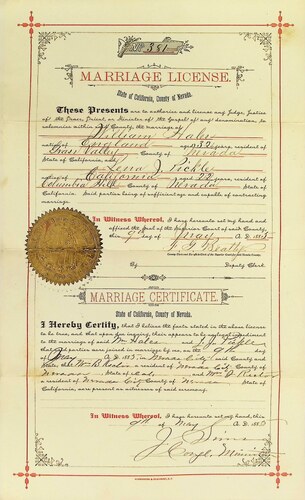 No. 381
MARRIAGE LICENSE.
State of California, County of Nevada.
These Presents are to authorize and license any Judge, Justice
of the Peace, Priest, or Minister of the Gospel of any denomination, to
solemnize within said County, the marriage of
William Hales
native of England aged 32 years,
Grass Valley County of Nevada
State of California, and
Lena J. Pickle
native of California aged 22
Columbia Hill County of Nevada
State of California. Said parties being of sufficient age and capable of contracting
marriage.
In Witness Whereof, I have hereunto set my hand and
affixed the Seal of the Superior Court of said County,
this 9th day of May A. D. 188
Clerk
By
Deputy Clerk.
MARRIAGE CERTIFICATE.
State of California, County of Nevada.
I Hereby Certify, that I believe the facts stated in the above license
to be true, and that upon due inquiry, there appears to be no legal impediment
to the marriage of said Wm Hales and
that said parties were joined in marriage by me on the 9th day
of May A. D. 188 in Nevada City said County and
State, that Wm B a resident of Nevada City County of
Nevada State of Cal, and
a resident of Nevada City County of Nevada State of
California, are present as witnesses of said ceremony.
In Witness Whereof, I have hereunto set my hand, this
9th of May A. D. 188
J. Sims
Congl. Minister